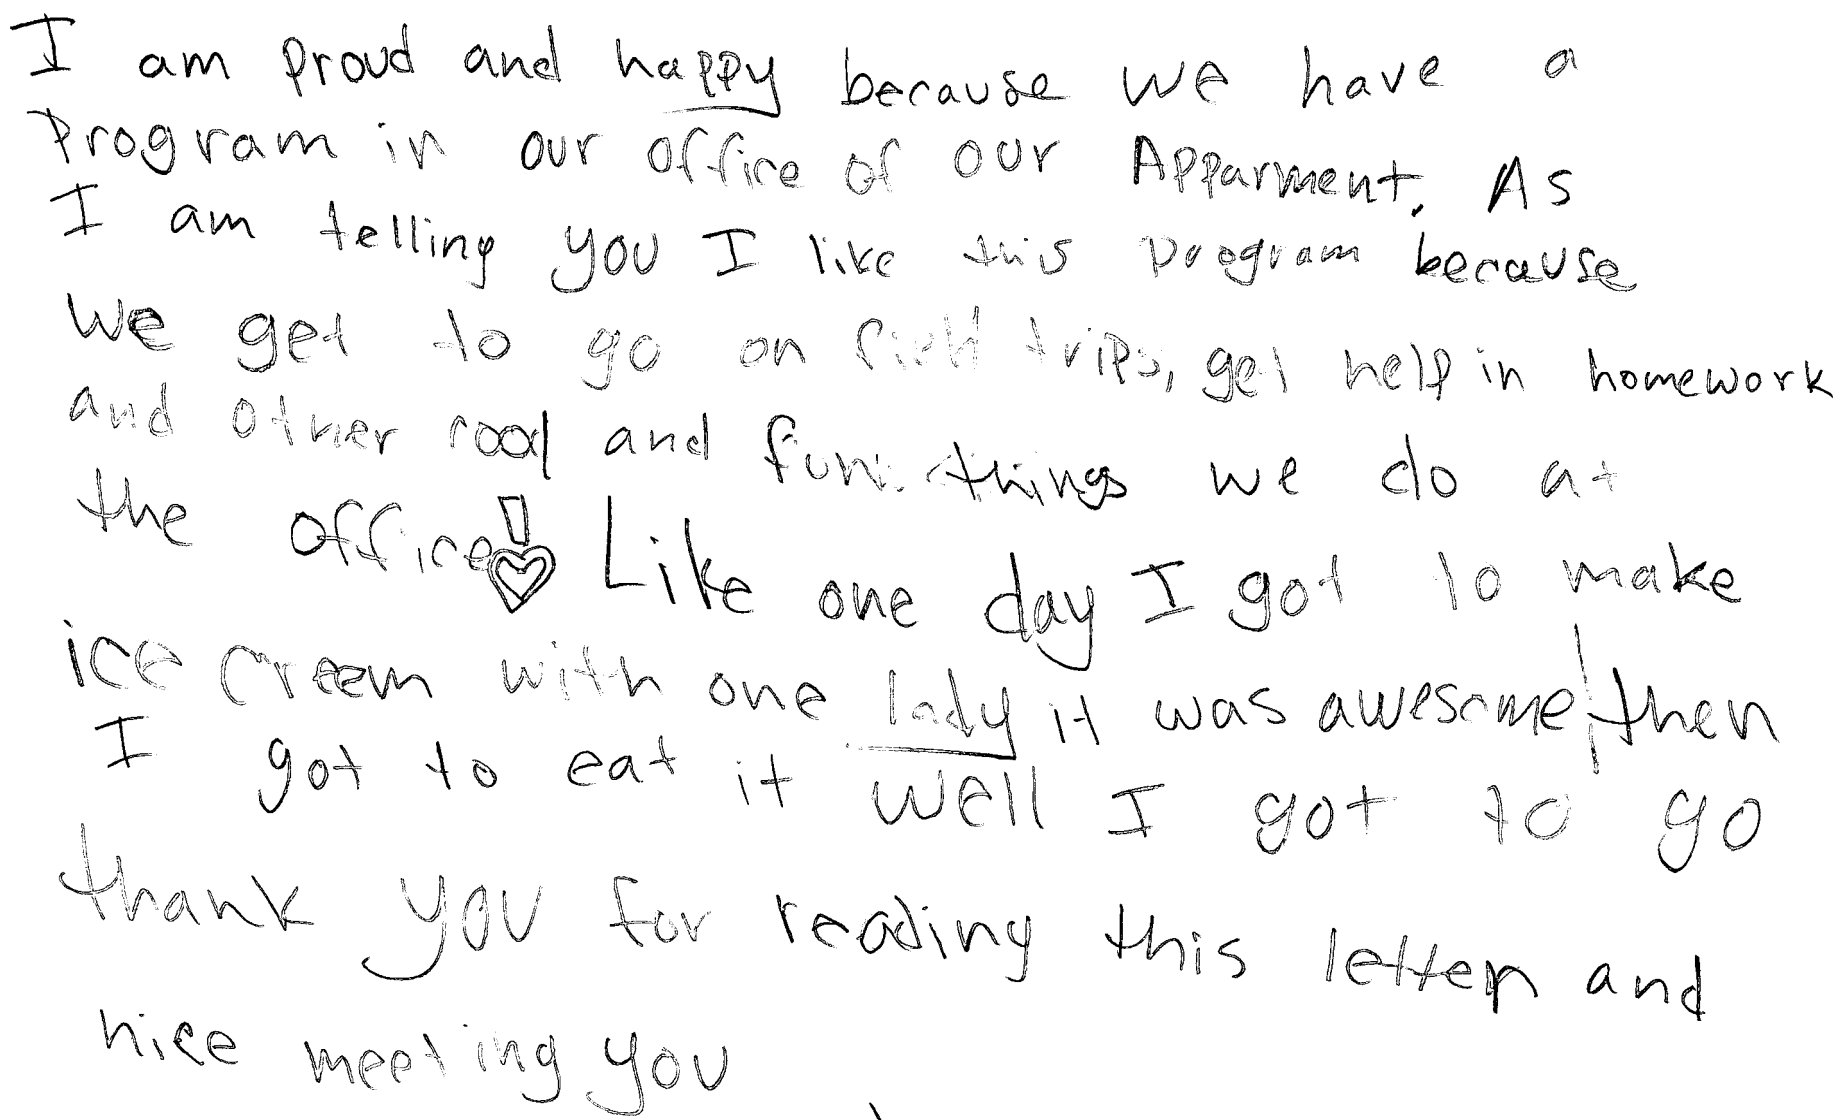 I am proud and happy because we have a
Program in our office of our Apparment. As
I am telling you I like this program because
we get to go on field trips, get help in homework
and other cool and fun things we do at
the office! Like one day I got to make
ice creem with one lady it was awesome! then
I got to eat it well I got to go
thank you for reading this letter and
nice meeting you